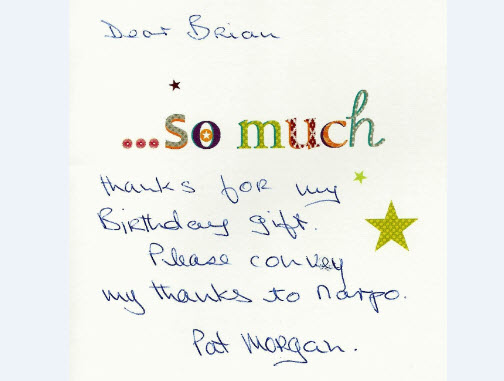 Dear Brian
...so much
thanks for my
Birthday gift.
Please convey
my thanks to Narpo.
Pat Morgan.